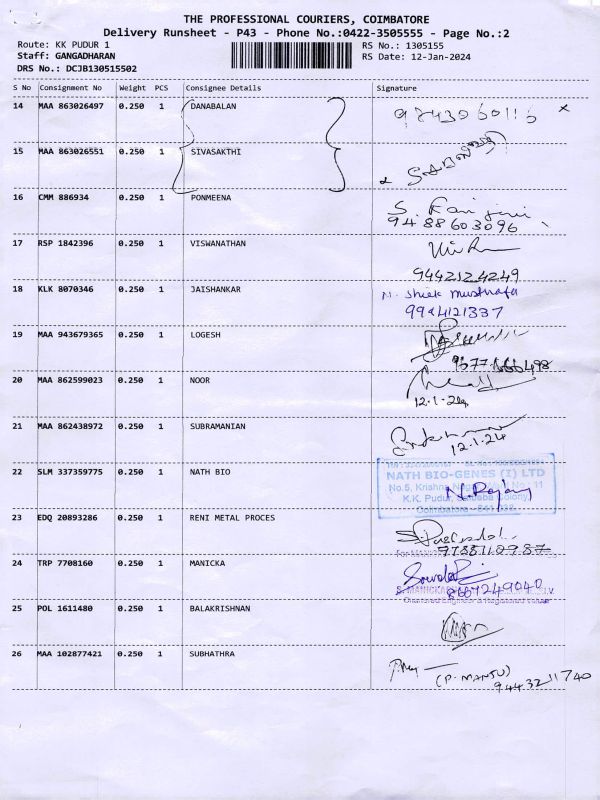 THE PROFESSIONAL COURIERS, COIMBATORE
Delivery Runsheet - P43 - Phone No.:0422-3505555 - Page No.:2
Route: KK PUDUR 1
RS No.: 1305155
Staff: GANGADHARAN
RS Date: 12-Jan-2024
DRS No.: DCJB130515502
S No Consignment No Weight PCS Consignee Details Signature
14 MAA 863026497 0.250 1 DANABALAN 9843060116 x
15 MAA 863026551 0.250 1 SIVASAKTHI
16 CMM 886934 0.250 1 PONMEENA
9488603096
17 RSP 1842396 0.250 1 VISWANATHAN
9442124249
18 KLK 8070346 0.250 1 JAISHANKAR N. Shiek Musthafa
9994121337
19 MAA 943679365 0.250 1 LOGESH
20 MAA 862599023 0.250 1 NOOR
12.1.24
21 MAA 862438972 0.250 1 SUBRAMANIAN
12.1.24
22 SLM 337359775 0.250 1 NATH BIO NATH BIO-GENES (I) LTD
No.5, Krishna
N. Rajan
K.K. Pudur, Colony,
Coimbatore - 641 038.
23 EDQ 20893286 0.250 1 RENI METAL PROCES
24 TRP 7708160 0.250 1 MANICKA
8667249040
Chartered Engineer & Registered Valuer
25 POL 1611480 0.250 1 BALAKRISHNAN
26 MAA 102877421 0.250 1 SUBHATHRA
(P. MANJU)
9443211740